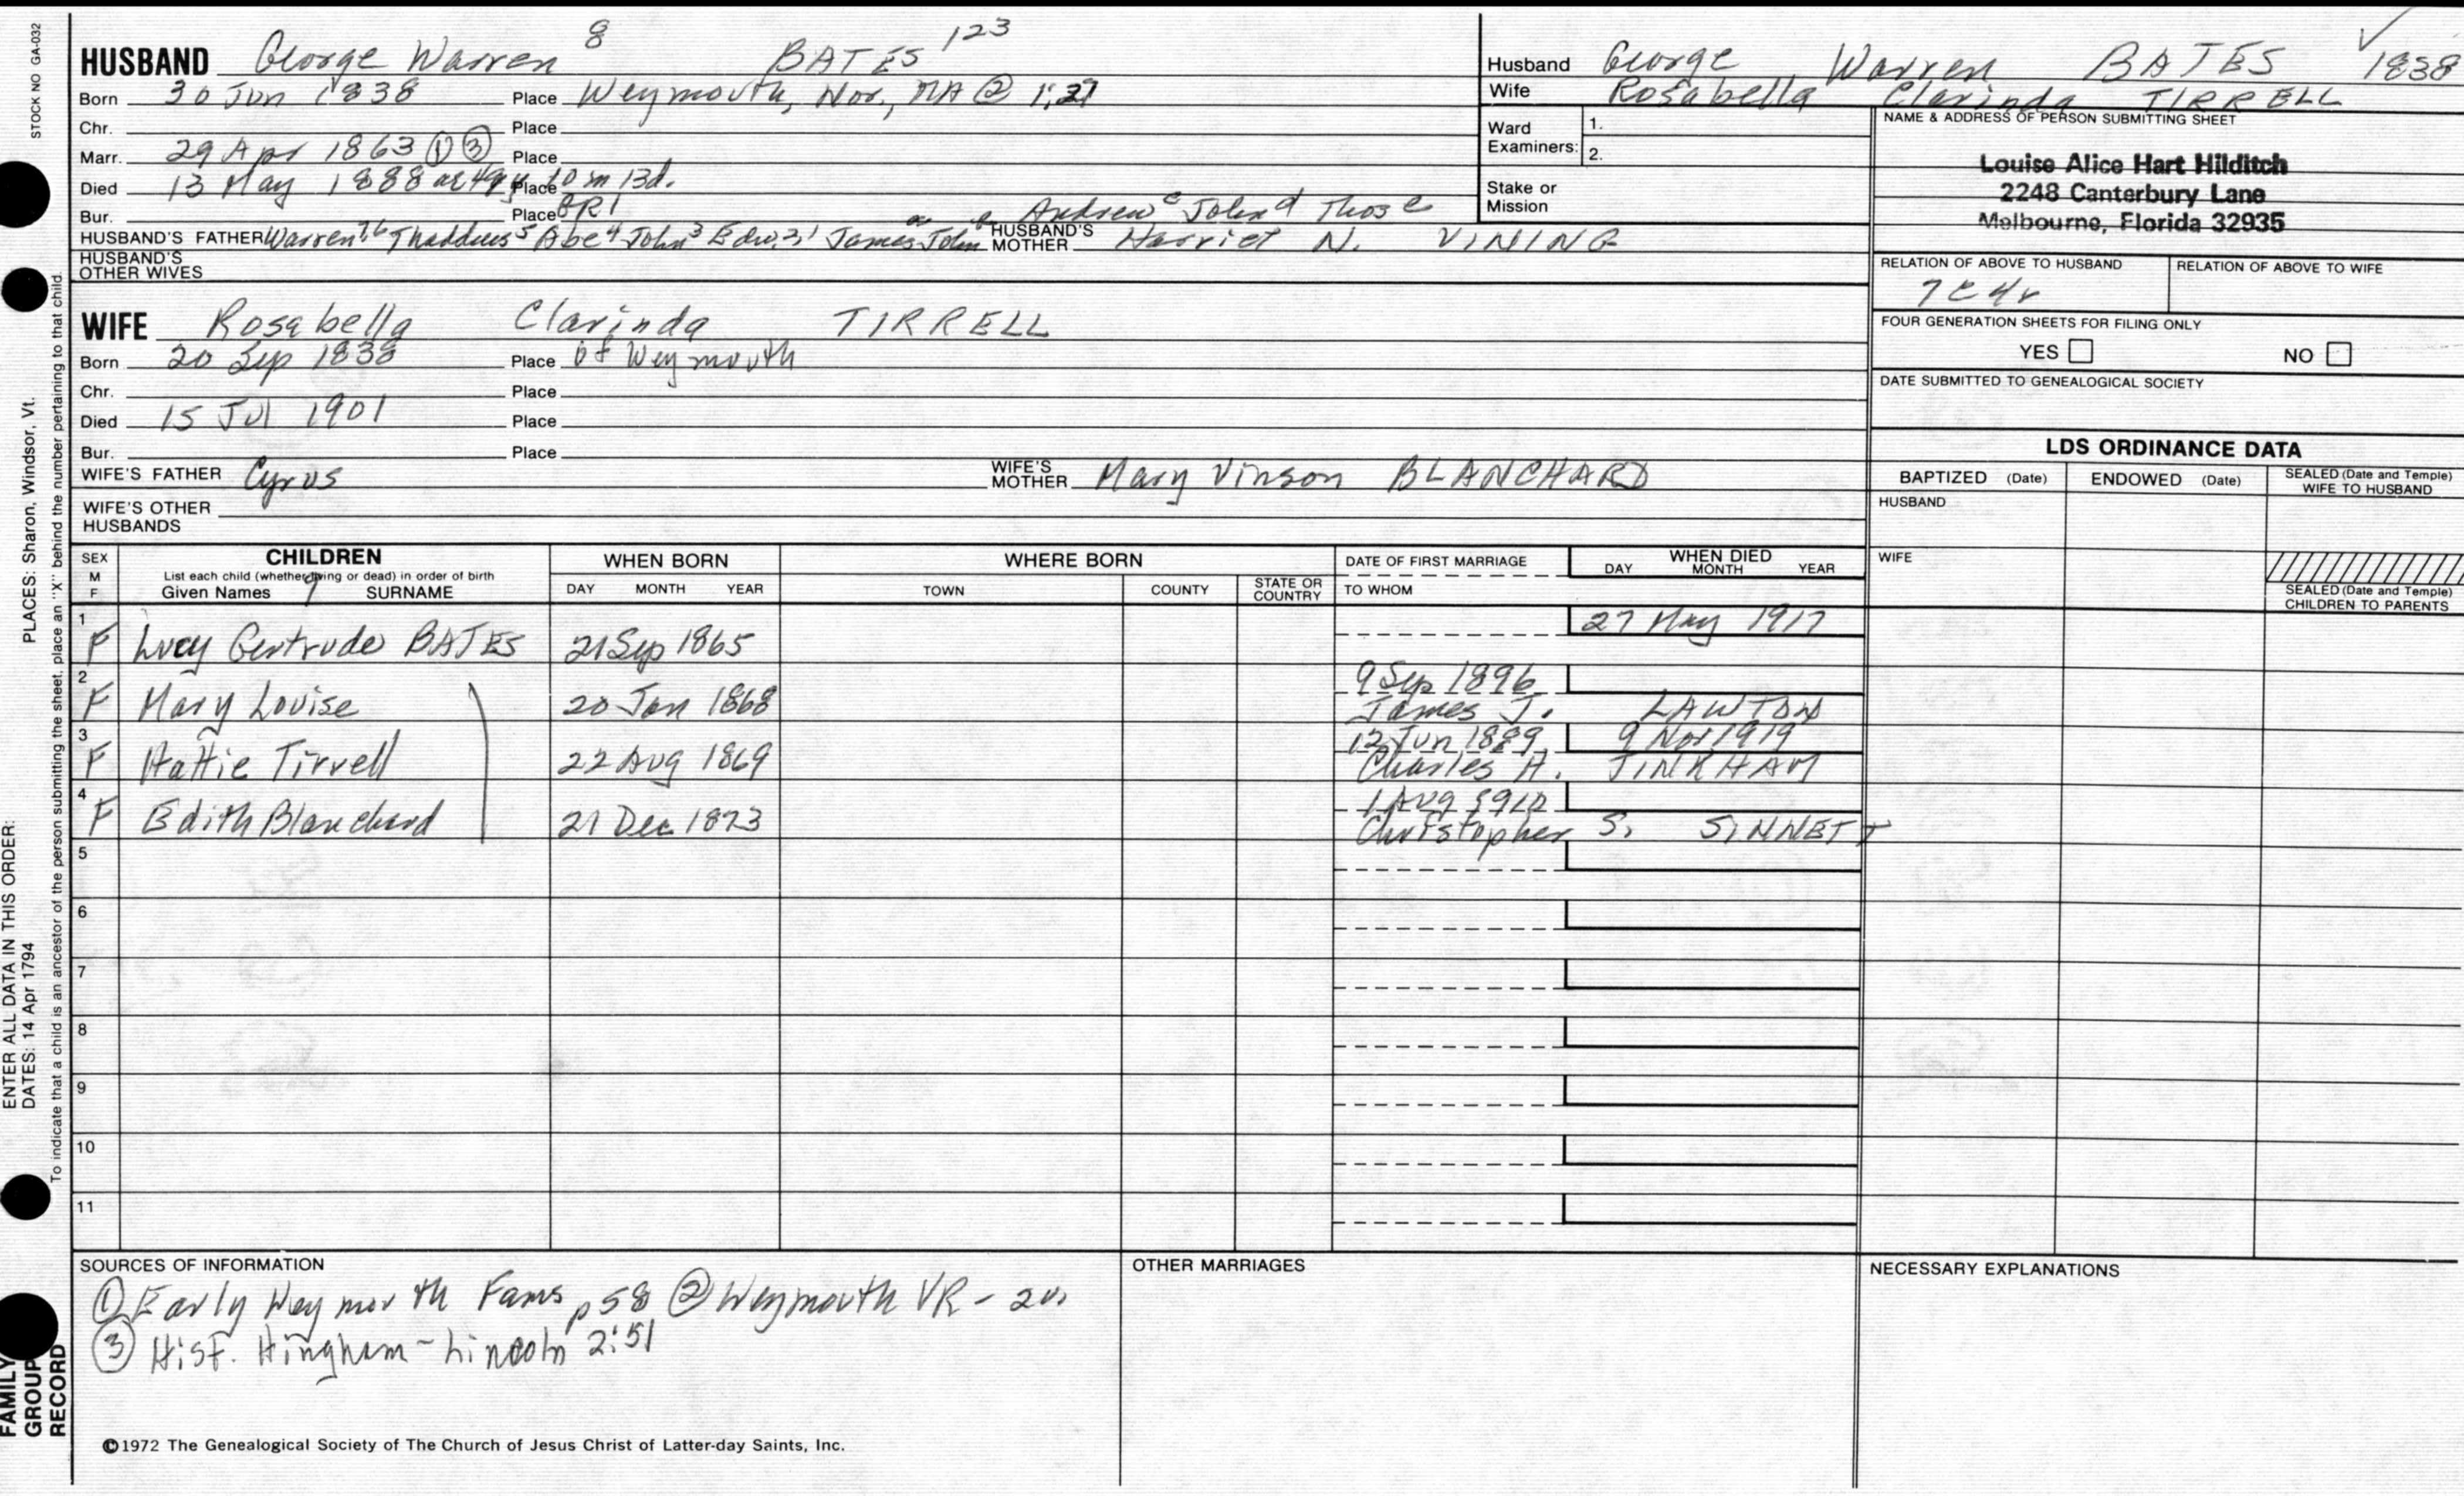 STOCK NO GA-032
HUSBAND George Warren 8 BATES 123
Born 30 Jun 1838 Place Weymouth, Nor., MA @ 1:27
Chr. Place
Marr. 29 Apr 1863 ① ③ Place
Died 13 May 1888 ae 49y Place 10m 13d.
Bur. Place BRI
Andrew c John d Thos e
HUSBAND'S FATHER Warren 7,6 Thaddeus 5 Abe 4 John 3 Edw. 2,1 James John HUSBAND'S MOTHER Harriet N. VINING
HUSBAND'S OTHER WIVES
WIFE Rosabella Clarinda TIRRELL
Born 20 Sep 1838 Place of Weymouth
Chr. Place
Died 15 Jul 1901 Place
Bur. Place
WIFE'S FATHER Cyrus WIFE'S MOTHER Mary Vinson BLANCHARD
WIFE'S OTHER HUSBANDS
Husband George Warren BATES 1838
Wife Rosabella Clarinda TIRRELL
Ward Examiners: 1.
2.
Stake or Mission
NAME & ADDRESS OF PERSON SUBMITTING SHEET
Louise Alice Hart Hilditch
2248 Canterbury Lane
Melbourne, Florida 32935
RELATION OF ABOVE TO HUSBAND RELATION OF ABOVE TO WIFE
7c4r
FOUR GENERATION SHEETS FOR FILING ONLY
YES NO
DATE SUBMITTED TO GENEALOGICAL SOCIETY
LDS ORDINANCE DATA
BAPTIZED (Date) ENDOWED (Date) SEALED (Date and Temple) WIFE TO HUSBAND
HUSBAND
WIFE
SEALED (Date and Temple) CHILDREN TO PARENTS
SEX M F CHILDREN WHEN BORN WHERE BORN DATE OF FIRST MARRIAGE WHEN DIED
List each child (whether living or dead) in order of birth
Given Names 9 SURNAME DAY MONTH YEAR TOWN COUNTY STATE OR COUNTRY TO WHOM DAY MONTH YEAR
1 27 May 1917
F Lucy Gertrude BATES 21 Sep 1865
2 9 Sep 1896
F Mary Louise 20 Jan 1868 James J. LAWTON
3 12 Jun 1889 9 Nov 1919
F Hattie Tirrell 22 Aug 1869 Charles H. TINKHAM
4 1 Aug
F Edith Blanchard 21 Dec 1873 Christopher S. SINNETT
5
6
7
8
9
10
11
SOURCES OF INFORMATION
① Early Weymouth Fams p 58 ② Weymouth VR -
③ Hist. Hingham - Lincoln 2:51
OTHER MARRIAGES
NECESSARY EXPLANATIONS
©1972 The Genealogical Society of The Church of Jesus Christ of Latter-day Saints, Inc.
ENTER ALL DATA IN THIS ORDER:
DATES: 14 Apr 1794 PLACES: Sharon, Windsor, Vt.
To indicate that a child is an ancestor of the person submitting the sheet, place an "X" behind the number pertaining to that child.
FAMILY
GROUP
RECORD